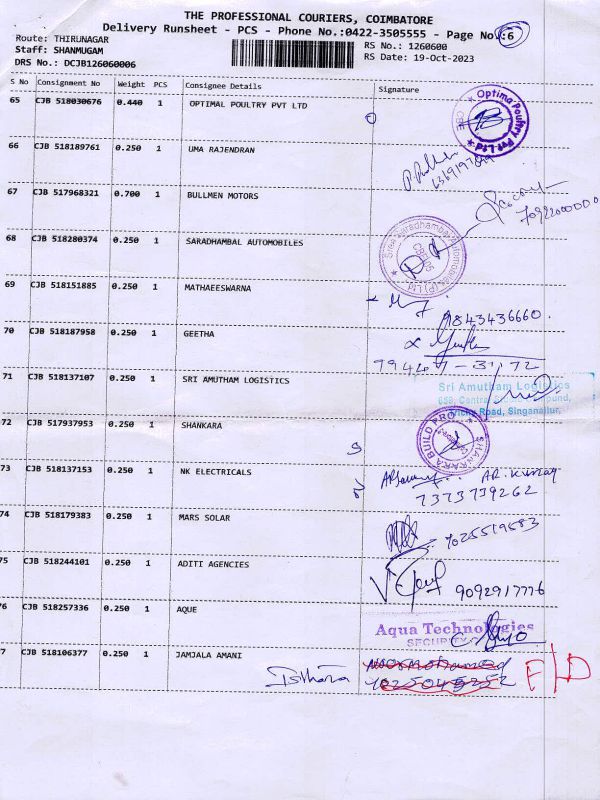 THE PROFESSIONAL COURIERS, COIMBATORE
Delivery Runsheet - PCS - Phone No.:0422-3505555 - Page No.:6
Route: THIRUNAGAR
Staff: SHANMUGAM
DRS No.: DCJB126060006
RS No.: 1260600
RS Date: 19-Oct-2023
S No Consignment No Weight PCS Consignee Details Signature
65 CJB 518030676 0.440 1 OPTIMAL POULTRY PVT LTD
Optima Poultry Pvt Ltd CBE
66 CJB 518189761 0.250 1 UMA RAJENDRAN
67 CJB 517968321 0.700 1 BULLMEN MOTORS
68 CJB 518280374 0.250 1 SARADHAMBAL AUTOMOBILES
Sree Saradhambal Automobiles (P) Ltd
69 CJB 518151885 0.250 1 MATHAEESWARNA
9843436660.
70 CJB 518187958 0.250 1 GEETHA
71 CJB 518137107 0.250 1 SRI AMUTHAM LOGISTICS
Sri Amutham Logistics
Road, Singanallur,
72 CJB 517937953 0.250 1 SHANKARA
SHANKARA BUILD PRO
73 CJB 518137153 0.250 1 NK ELECTRICALS
7373739262
74 CJB 518179383 0.250 1 MARS SOLAR
7025519583
75 CJB 518244101 0.250 1 ADITI AGENCIES
9092917776
76 CJB 518257336 0.250 1 AQUE
Aqua Technologies
SECURITY
77 CJB 518106377 0.250 1 JAMJALA AMANI